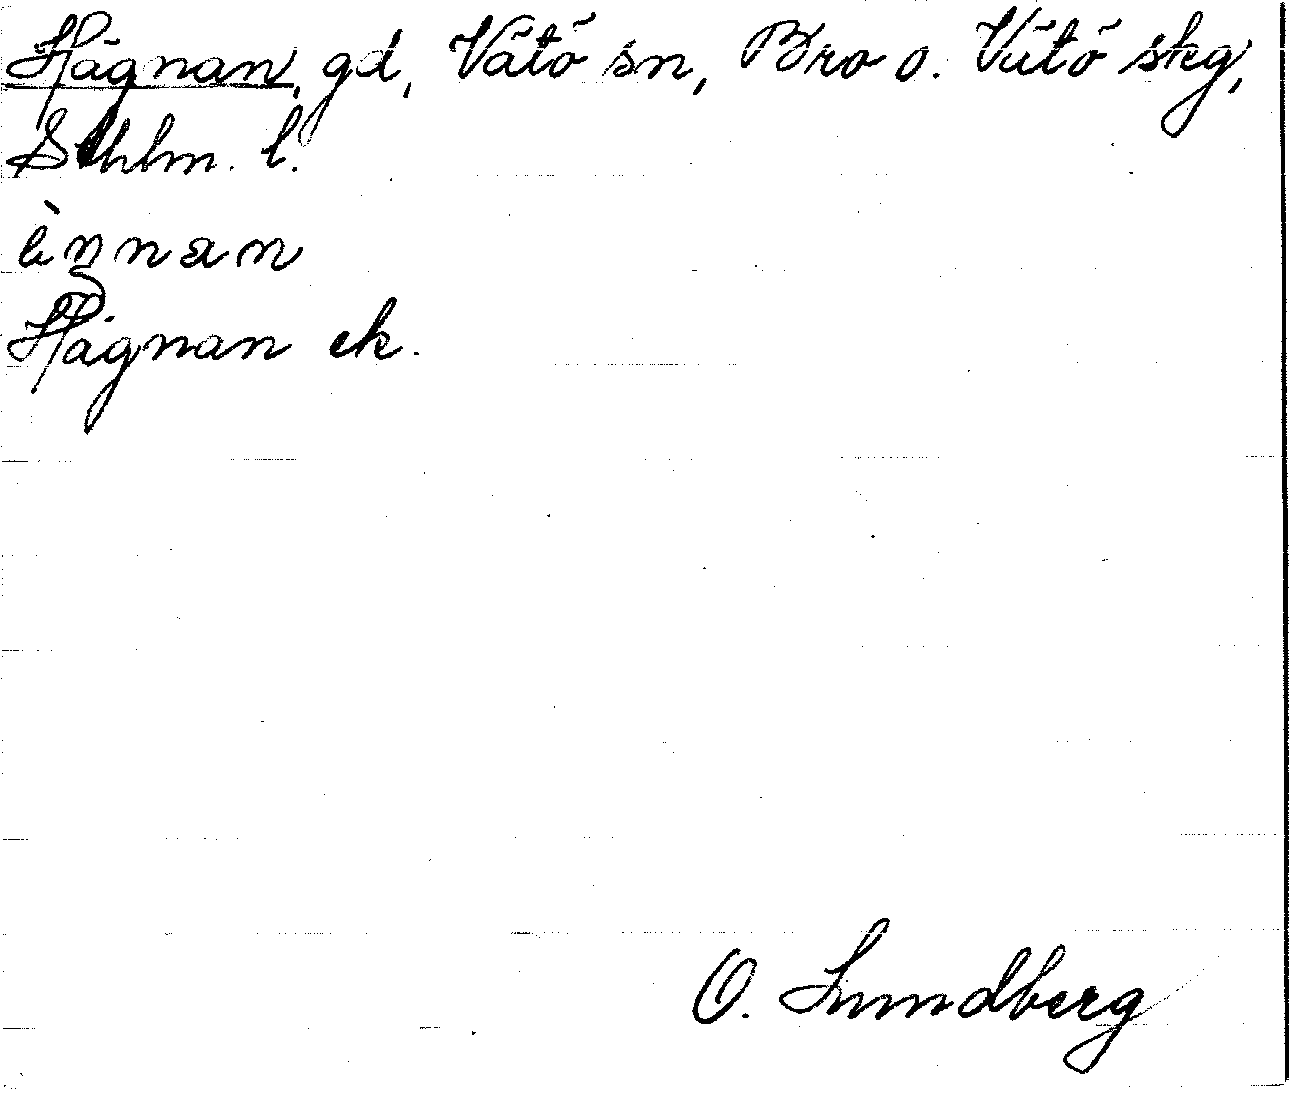 Hägnan, gd, Vätö sn, Bro o. Vätö skg,
Sthlm. l.
Hägnan ek.
O. Lundberg